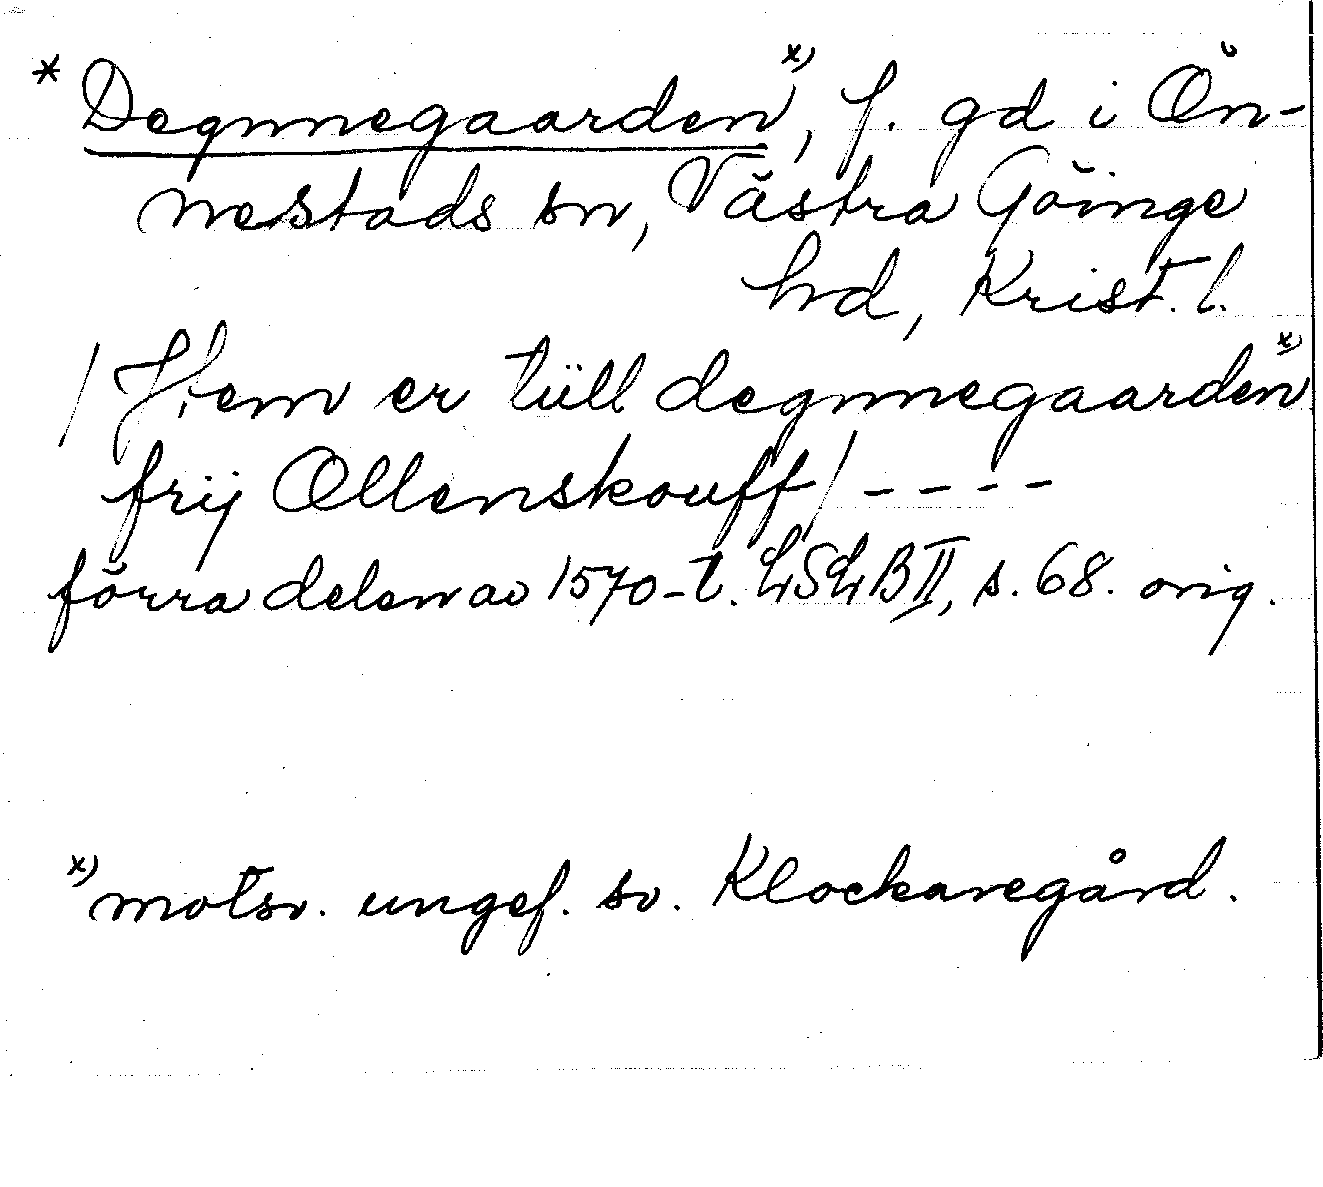 * Degnnegaarden x), f. gd i Ön-
nestads sn, Västra Göinge
hd, Krist. l.
/ Hem er tüll degnnegaarden x)
frij Ollenskouff / - - - -
förra delen av 1570-t. LSLB II, s. 68. orig.
x) motsv. ungef. sv. Klockaregård.